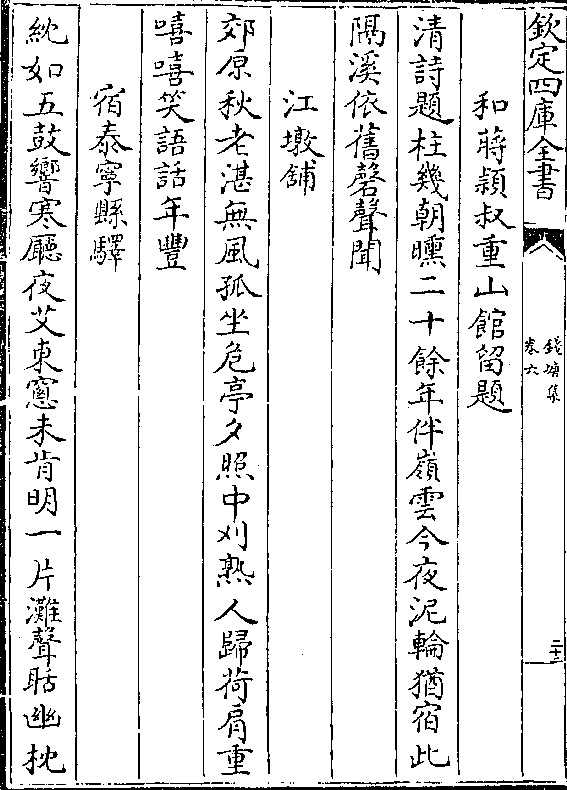 欽定四庫全書
錢塘集
卷六
二十二
和蔣頴叔重山館留題
清詩題柱幾朝曛二十餘年伴嶺雲今夜泥輪猶宿此
隔溪依舊磬聲聞
江墩舖
郊原秋老湛無風孤坐危亭夕照中刈熟人歸荷肩重
嘻嘻笑語話年豐
宿泰寧縣驛
紞如五鼓響寒廳夜艾東窻未肯明一片灘聲聒幽枕